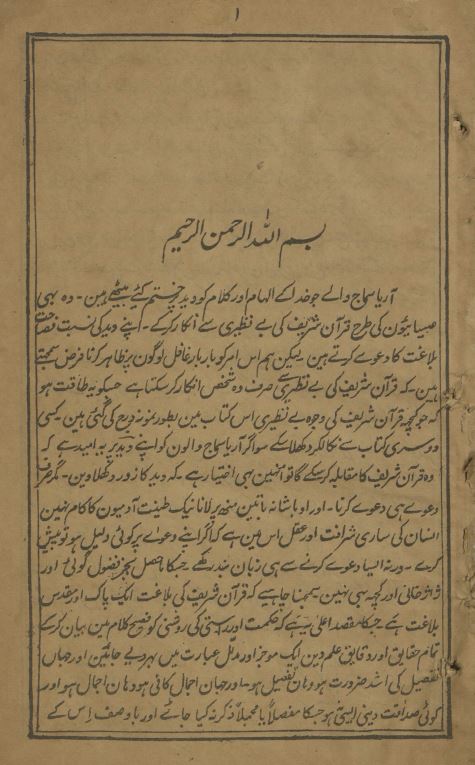 ۱
بسم اللہ الرحمن الرحیم
آریا سماج والے جو خدا کے الہام اور کلام کو وید پر ختم کئے بیٹھے ہین۔ وہ بہی
عیسائیون کی طرح قرآن شریف کی بے نظیری سے انکار کرکے۔ اپنے وید کی نسبت فصاحت
بلاغت کا دعوے کرتے ہین لیکن ہم اس امر کو بار بار غافل لوگون پر ظاہر کرنا فرض سمجہتے
ہین۔ کہ قرآن شریف کی بے نظیری سے صرف وہ شخص انکار کر سکتا ہے جسکو یہ طاقت ہو
کہ جو کچہہ قرآن شریف کی وجوہ بے نظیری اس کتاب مین بطور نمونہ درج کی گئی ہین کسی
دوسری کتاب سے نکالکر دکہلاسکے سو اگر آریا سماج والون کو اپنے وید پر یہ امید ہے کہ
وہ قرآن شریف کا مقابلہ کرسکے گا تو انہین بہی اختیار ہے۔ کہ وید کا زور دکہلاوین۔ مگر صرف
دعوے ہی دعوے کرنا۔ اور اوباشانہ باتین منہہ پر لانا نیک طینت آدمیون کا کام نہین
انسان کی ساری شرافت اور عقل اس مین ہے کہ اگر اپنے دعوے پر کوئی دلیل ہو تو پیش
کرے۔ ورنہ ایسا دعوے کرنے سے ہی زبان بند رکہے جسکا ماحصل بجز فضول گوئی اور
ژاژخائی اور کچہہ بہی نہین سمجہنا چاہیے کہ قرآن شریف کی بلاغت ایک پاک اور مقدس
بلاغت ہے جسکا مقصد اعلیٰ یہ ہے کہ حکمت اور راستی کی روشنی کو فصیح کلام مین بیان کرکے
تمام حقایق اور دقایق علم دین ایک موجز اور مدلل عبارت مین بہر دیے جائین اور جہان
تفصیل کی اشد ضرورت ہو وہان تفصیل ہو۔ اور جہان اجمال کافی ہو وہان اجمال ہو اور
کوئی صداقت دینی ایسی نہ ہو جسکا مفصلاً یا مجملاً ذکر نہ کیا جائے اور باوصف اس کے